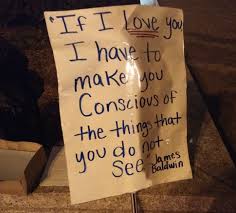 "If I Love you
I have to
make you
Conscious of
the things that
you do not
see. James
Baldwin